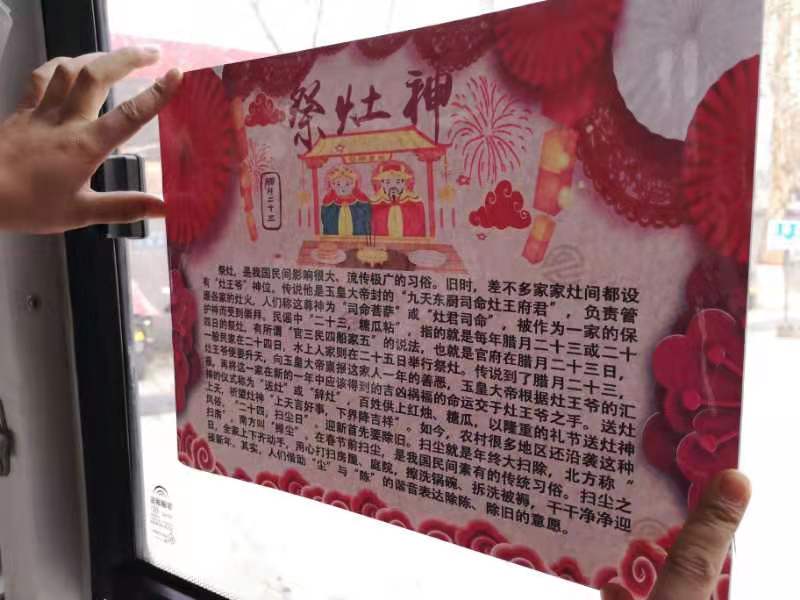 祭灶神
腊月二十三
祭灶，是我国民间影响很大、流传极广的习俗。旧时，差不多家家灶间都设
有“灶王爷”神位。传说他是玉皇大帝封的“九天东厨司命灶王府君”，负责管
理各家的灶火，人们称这尊神为“司命菩萨”或“灶君司命”，被作为一家的保
护神而受到崇拜。民谣中“二十三，糖瓜粘”，指的就是每年腊月二十三或二十
四日的祭灶。有所谓“官三民四船家五”的说法，也就是官府在腊月二十三日，
一般民家在二十四日，水上人家则在二十五日举行祭灶。传说到了腊月二十三，
灶王爷便要升天，向玉皇大帝禀报这家人一年的善恶，玉皇大帝根据灶王爷的汇
报，再将这一家在新的一年中应该得到的吉凶祸福的命运交于灶王爷之手。送灶
神的仪式称为“送灶”或“辞灶”，百姓供上红烛、糖瓜，以隆重的礼节送灶神
上天，祈望灶神“上天言好事，下界降吉祥”。如今，农村很多地区还沿袭这种
风俗。“二十四，扫尘日”，迎新首先要除旧。扫尘就是年终大扫除，北方称“
扫房”，南方叫“掸尘”。在春节前扫尘，是我国民间素有的传统习俗。扫尘之
日，全家上下齐动手，用心打扫房屋、庭院，擦洗锅碗、拆洗被褥，干干净净迎
接新年。其实，人们借助“尘”与“陈”的谐音表达除陈、除旧的意愿。